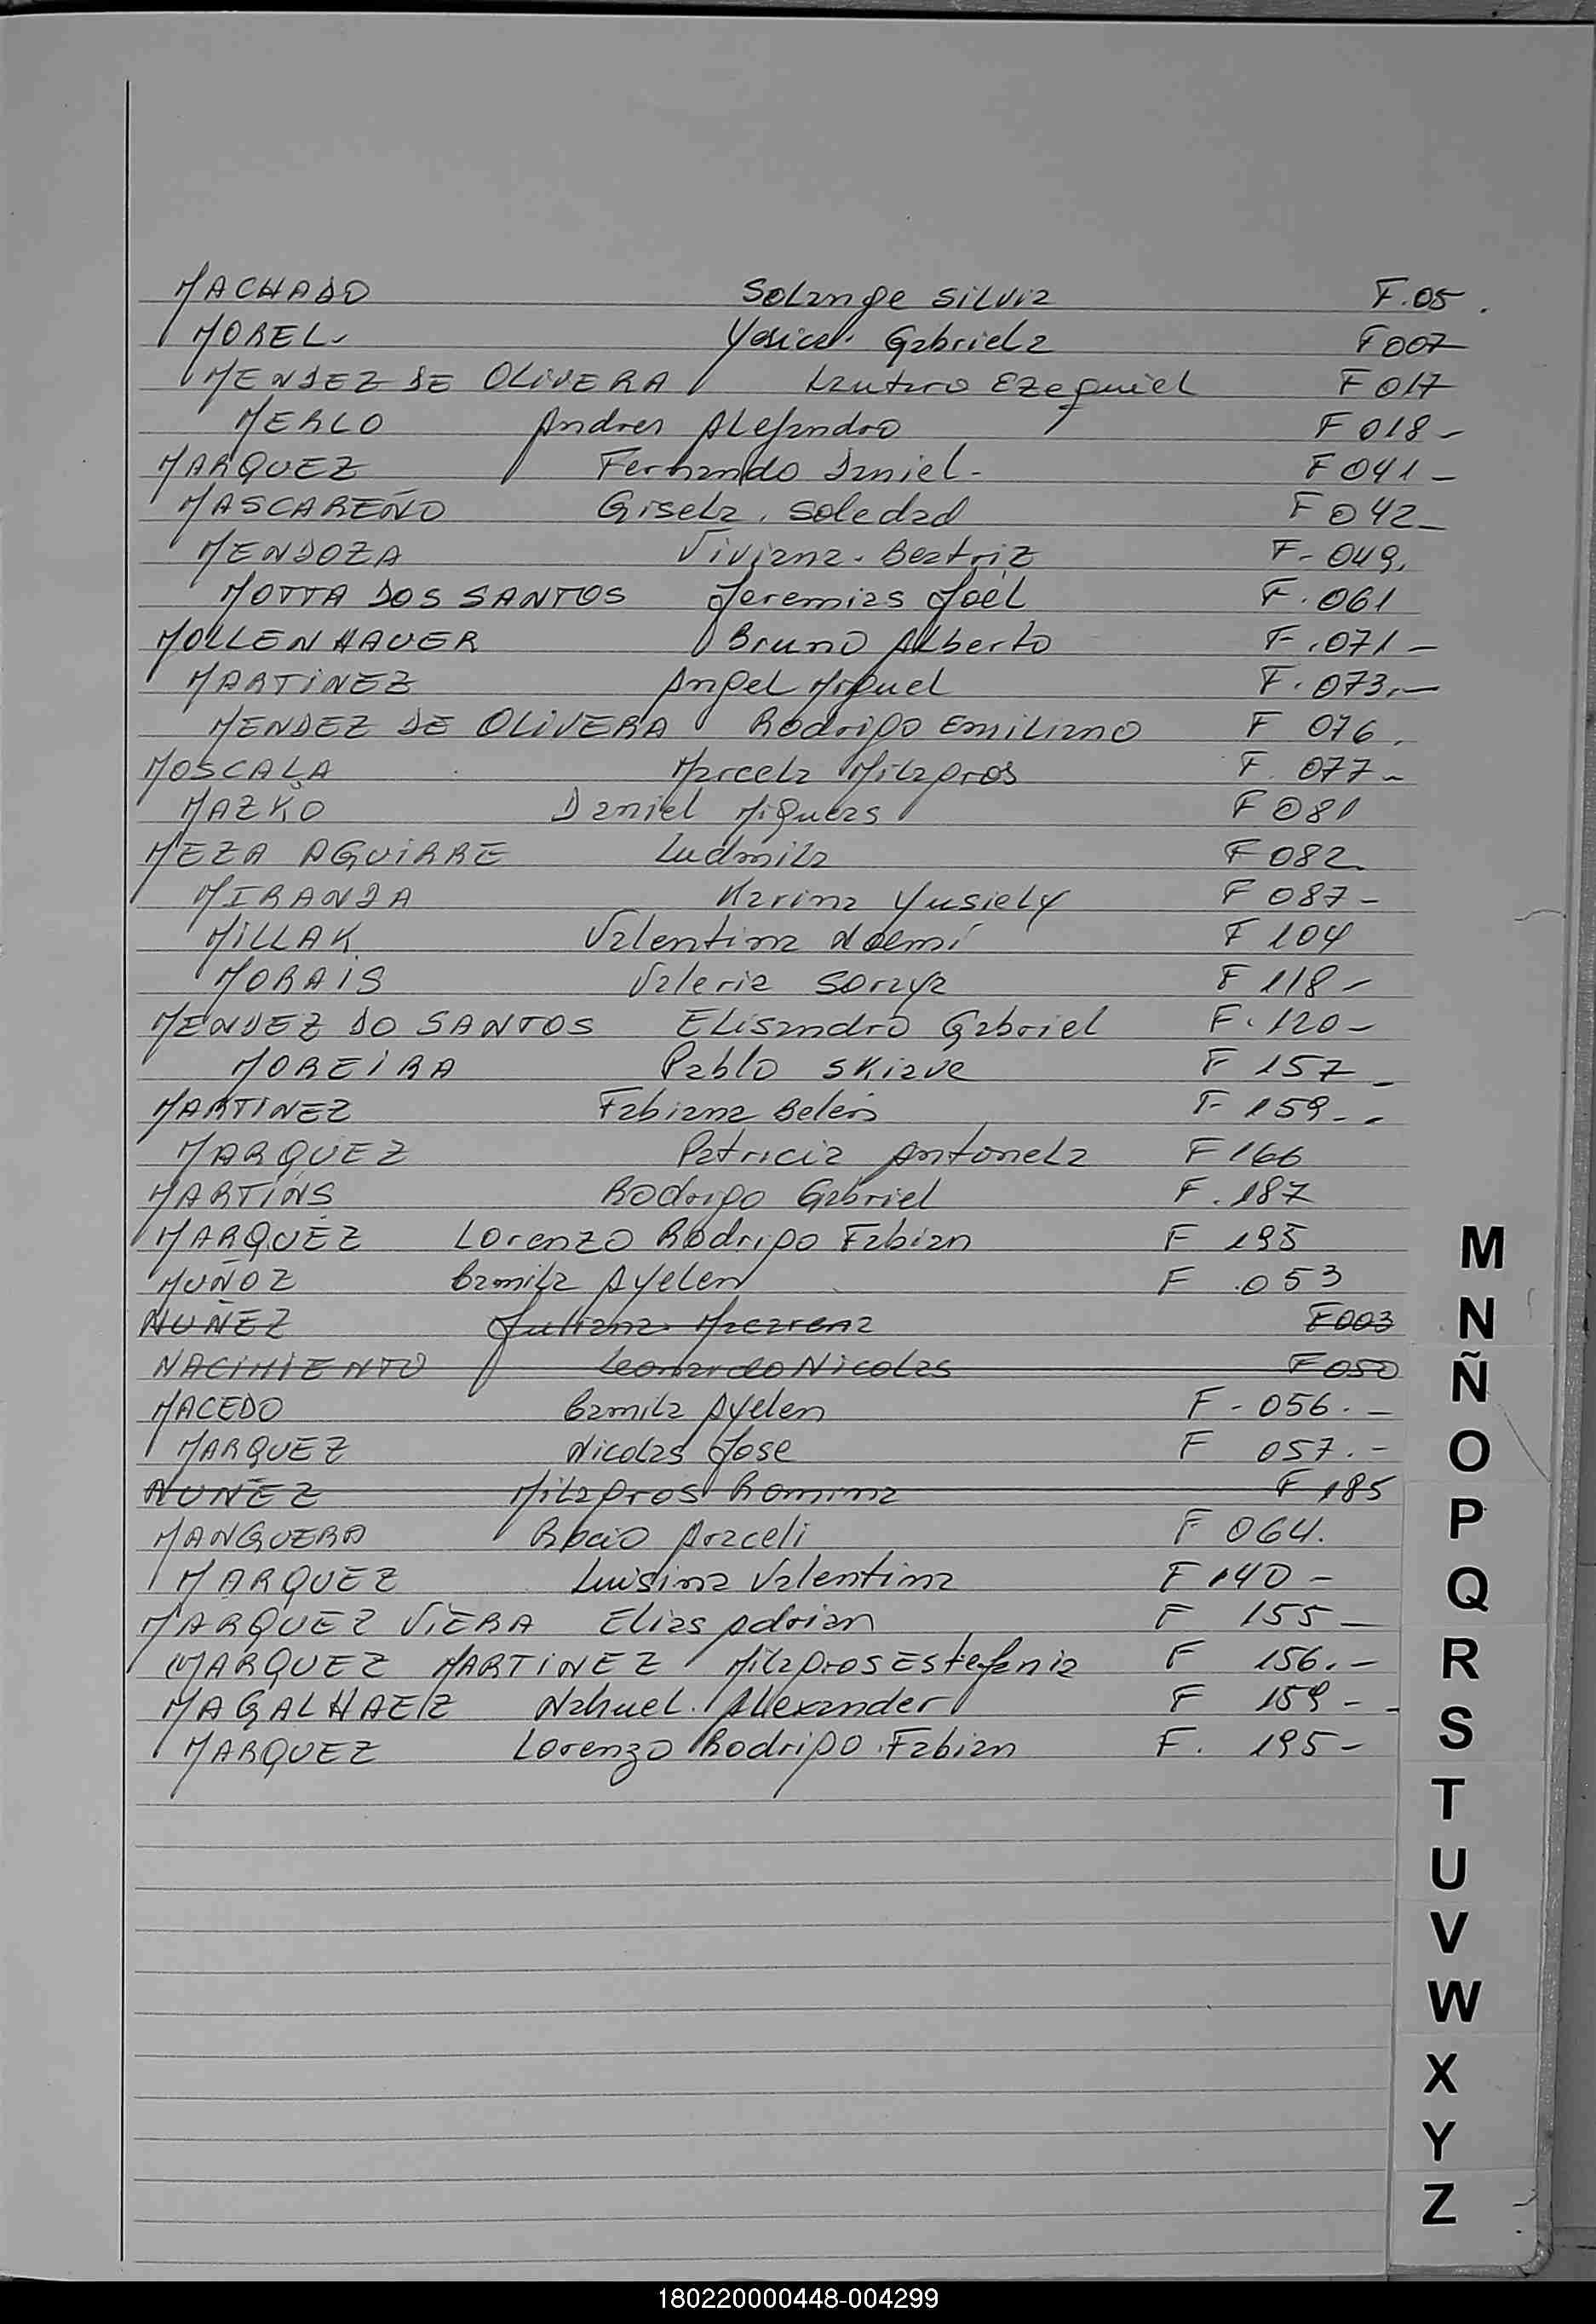 MACHADO Solange Silvia F.05.
MOREL Yesica Gabriela F 007
MENDEZ DE OLIVERA Lautaro Ezequiel F 017
MERLO Andres Alejandro F 018-
MARQUEZ Fernando Daniel- F 041-
MASCAREÑO Gisela. Soledad F 042-
MENDOZA Viviana. Beatriz F- 049.
MOTTA DOS SANTOS Jeremias Joel F. 061
MOLLENHAUER Bruno Alberto F. 071-
MARTINEZ Angel Miguel F. 073.-
MENDEZ DE OLIVERA Rodrigo Emiliano F 076.
MOSCALA Marcela Milagros F. 077-
MAZKO Daniel Miqueas F 081
MEZA AGUIRRE Ludmila F 082.
MIRANDA Karina Yusiely F 087-
MILLAK Valentina Noemí F 104
MORAIS Valeria Soraya F 118-
MENDEZ DO SANTOS Elisandro Gabriel F. 120-
MOREIRA Pablo F 157-
MARTINEZ Fabiana Belén F- 159--
MARQUEZ Patricia Antonela F 166
MARTINS Rodrigo Gabriel F. 187
MARQUEZ Lorenzo Rodrigo Fabian F 195
MUÑOZ Camila Ayelen F .053
NUÑEZ Juliana Macarena F003
NACIMIENTO Leonardo Nicolas F 050
MACEDO Camila Ayelen F- 056.-
MARQUEZ Nicolas Jose F 057.-
NUÑEZ Milagros Romina F 185
MANGUERA Rocio Araceli F 064.
MARQUEZ Luisina Valentina F 140-
MARQUEZ VIERA Elias Adrian F 155-
MARQUEZ MARTINEZ Milagros Estefania F 156.-
MAGALHAEZ Nahuel. Alexander F 159--
MARQUEZ Lorenzo Rodrigo Fabian F. 195-
M
N
Ñ
O
P
Q
R
S
T
U
V
W
X
Y
Z
180220000448-004299